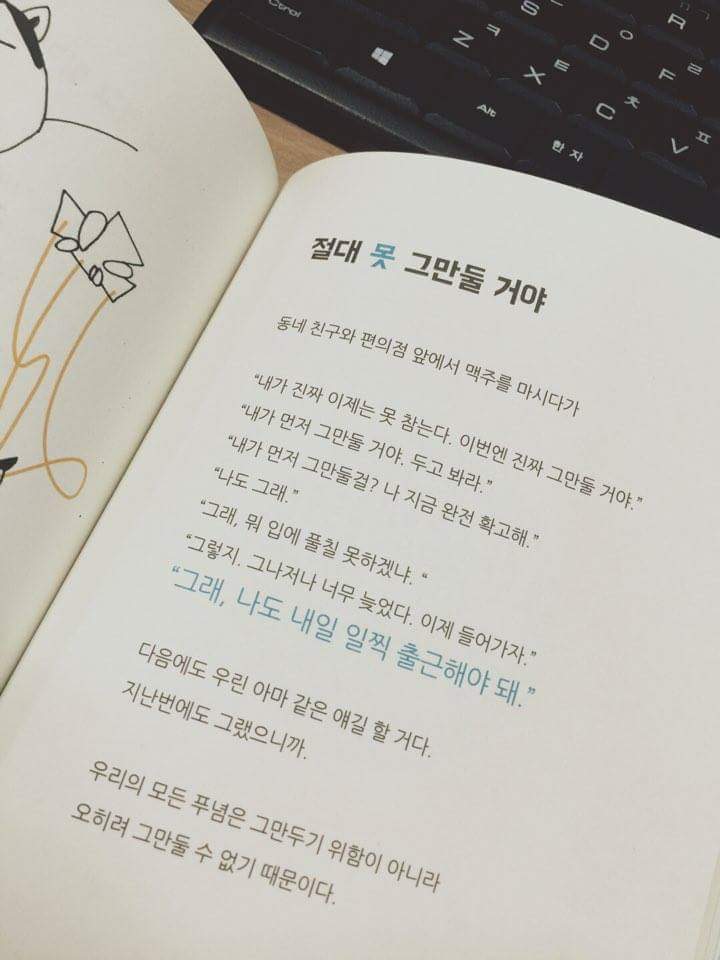 Ctrl
Alt
한자
S
R ㄲㄱ
Z ㅋ
D ㅇ
X ㅌ
F ㄹ
C ㅊ
V ㅍ
절대 못 그만둘 거야
동네 친구와 편의점 앞에서 맥주를 마시다가
“내가 진짜 이제는 못 참는다. 이번엔 진짜 그만둘 거야.”
“내가 먼저 그만둘 거야. 두고 봐라.”
“내가 먼저 그만둘걸? 나 지금 완전 확고해.”
“나도 그래.”
“그래, 뭐 입에 풀칠 못하겠냐. “
“그렇지. 그나저나 너무 늦었다. 이제 들어가자.”
“그래, 나도 내일 일찍 출근해야 돼.”
다음에도 우린 아마 같은 얘길 할 거다.
지난번에도 그랬으니까.
우리의 모든 푸념은 그만두기 위함이 아니라
오히려 그만둘 수 없기 때문이다.